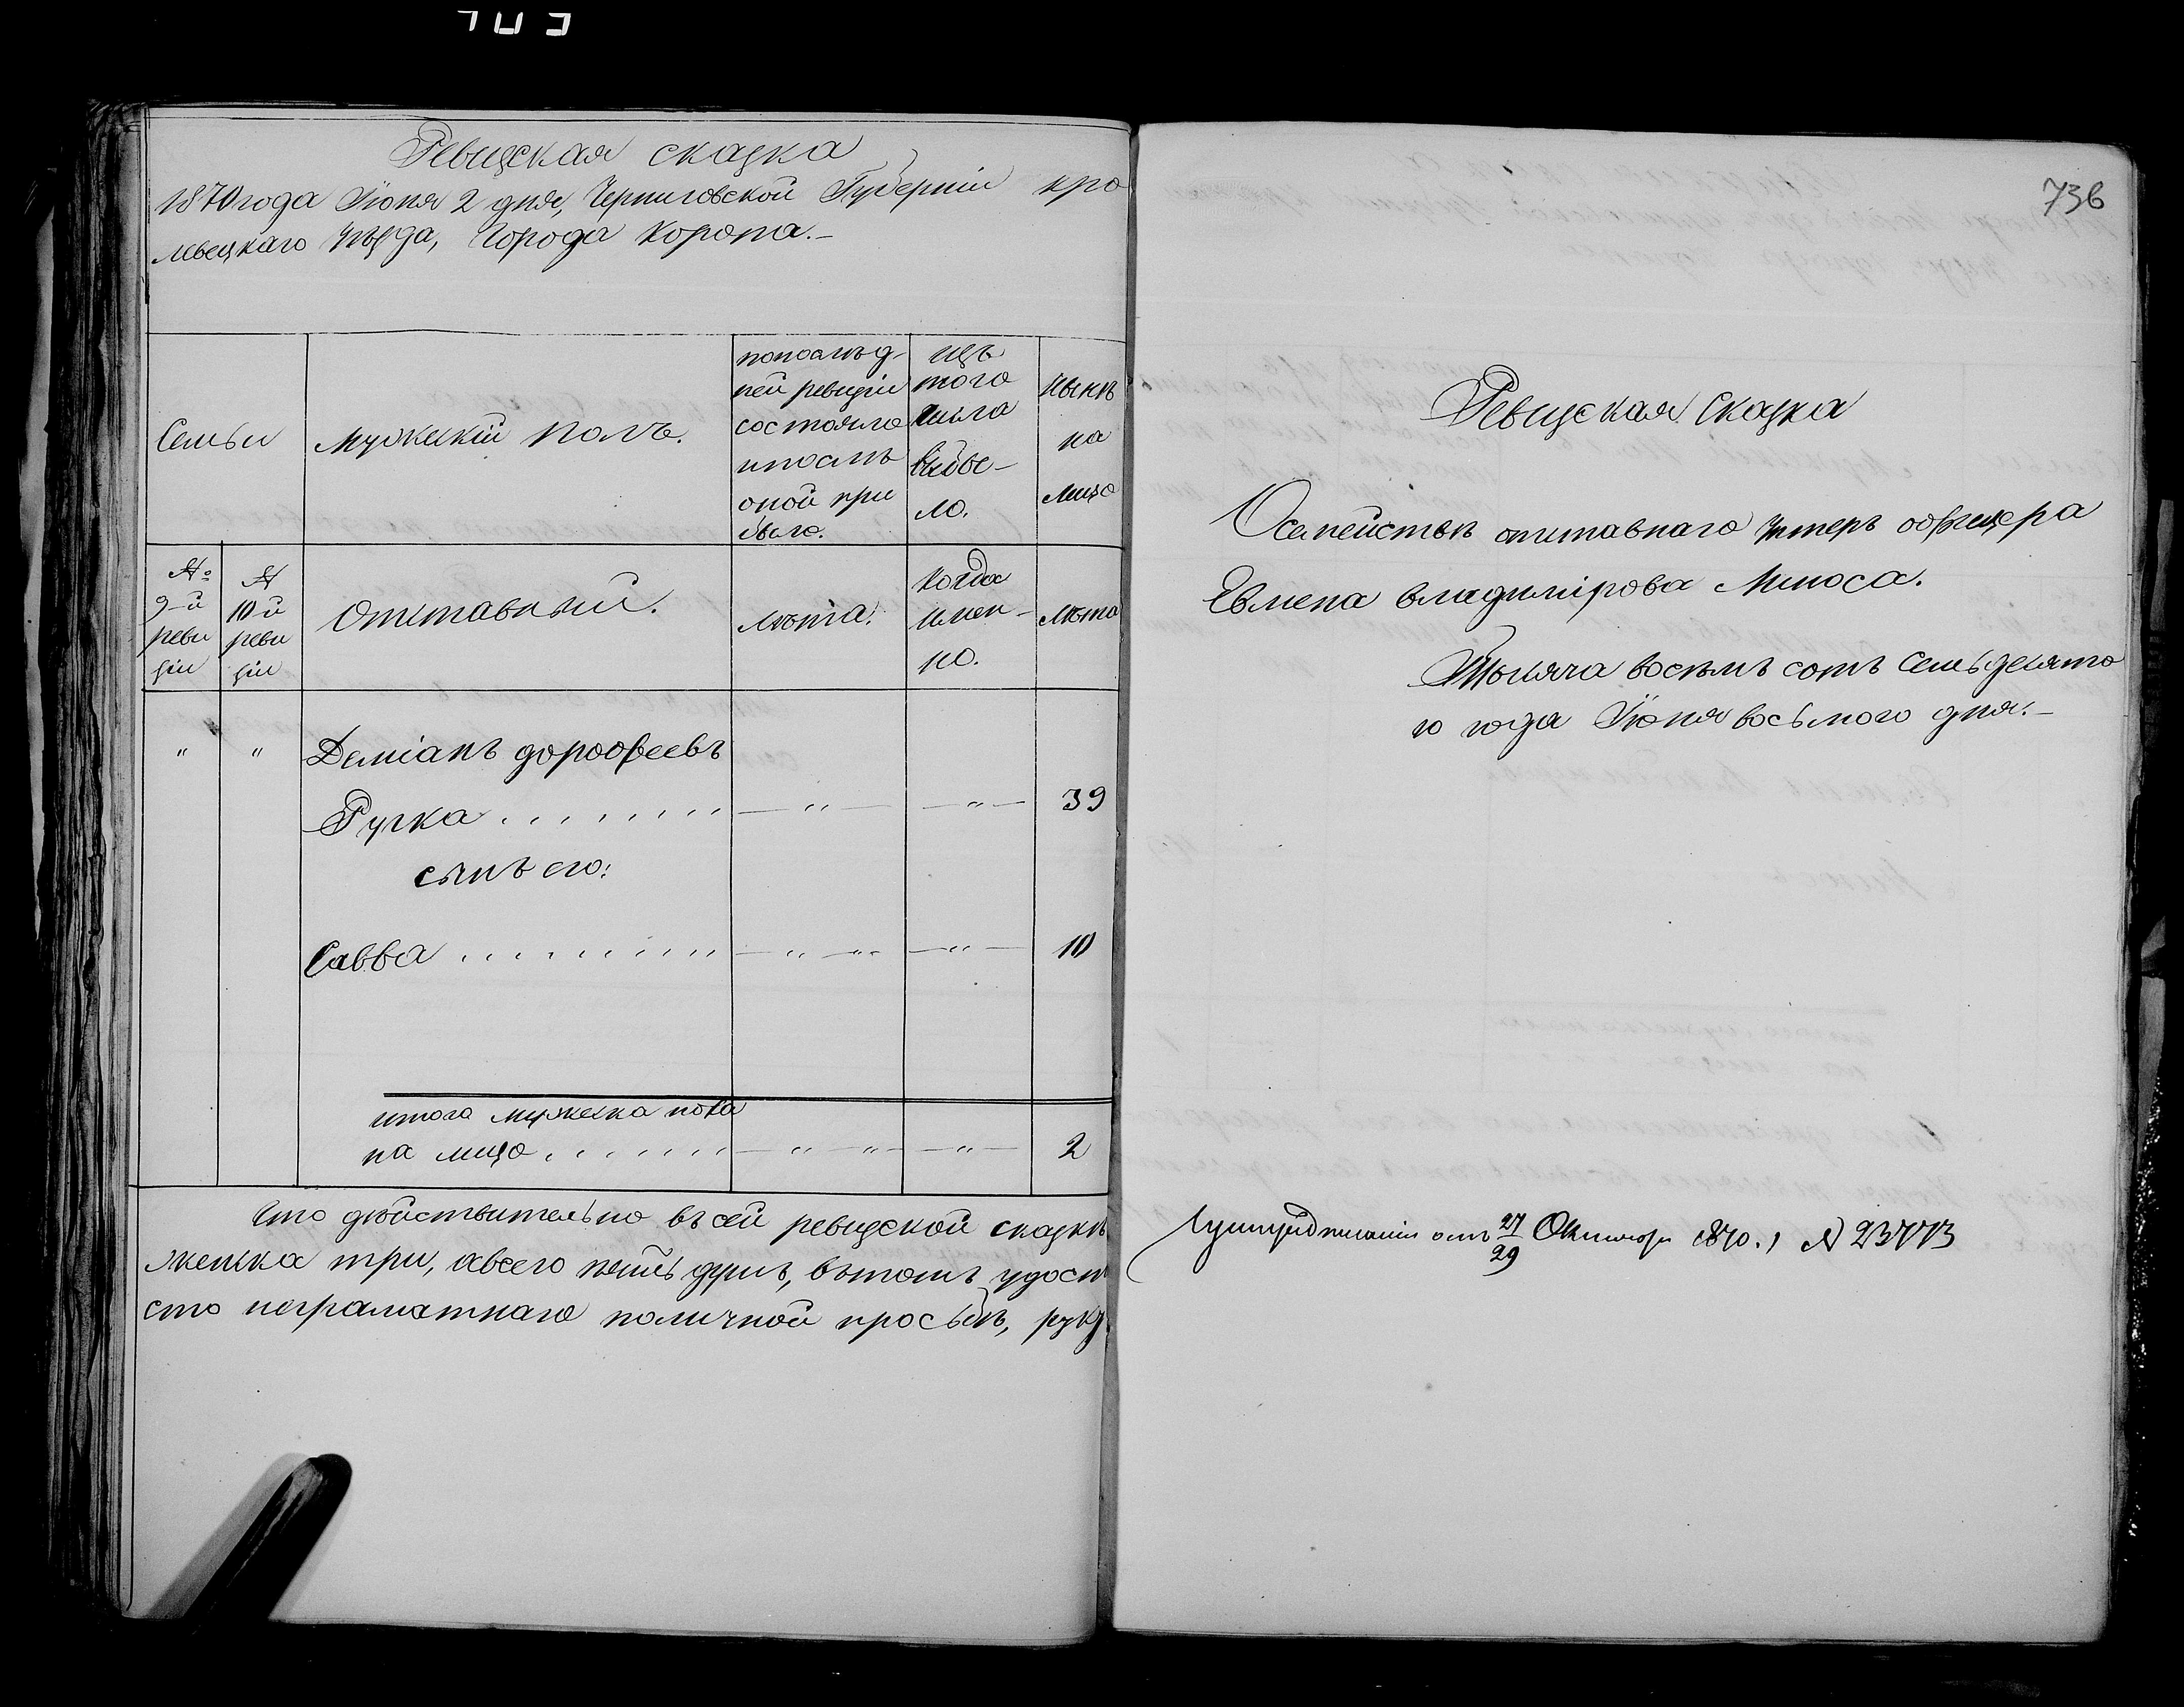 Ревизская сказка
1870 года Іюня 2 дня, Черниговской Губерніи кро
левецкаго Уѣзда, Города Коропа.–
Семьи
мужескій полъ.
попослѣд-
ней ревизіи
состояло
ипослѣ
оной при
было.
изъ
того
числа
выбы-
ло.
Нынѣ
на
лицо
№
9-й
реви
зіи
№
10-й
реви
зіи
Отставный.
лѣта.
когда
имен-
но.
Лѣта
" " Деміанъ дорофеевъ
Ручка . . . . . . . . . — " — — " — 39
сынъ его:
Савва . . . . . . . . . . — " — " — — " — 10
итого мужеска пола
на лицо . . . . . . . — " — " — — " — 2
Что дѣйствительно въ сей ревизской сказкѣ
женска три, авсего пять душъ, вътомъ удост
сто неграматнаго поличной прозьбѣ, рук
736
Ревизская Сказка
Осемействѣ отставнаго Унтеръ офицера
Евмена владимірова Миноса.
Тысяча восемъ сотъ Семьдесято
го года Іюня восьмого дня.–
от 27/29 Октября 1870. № 23773